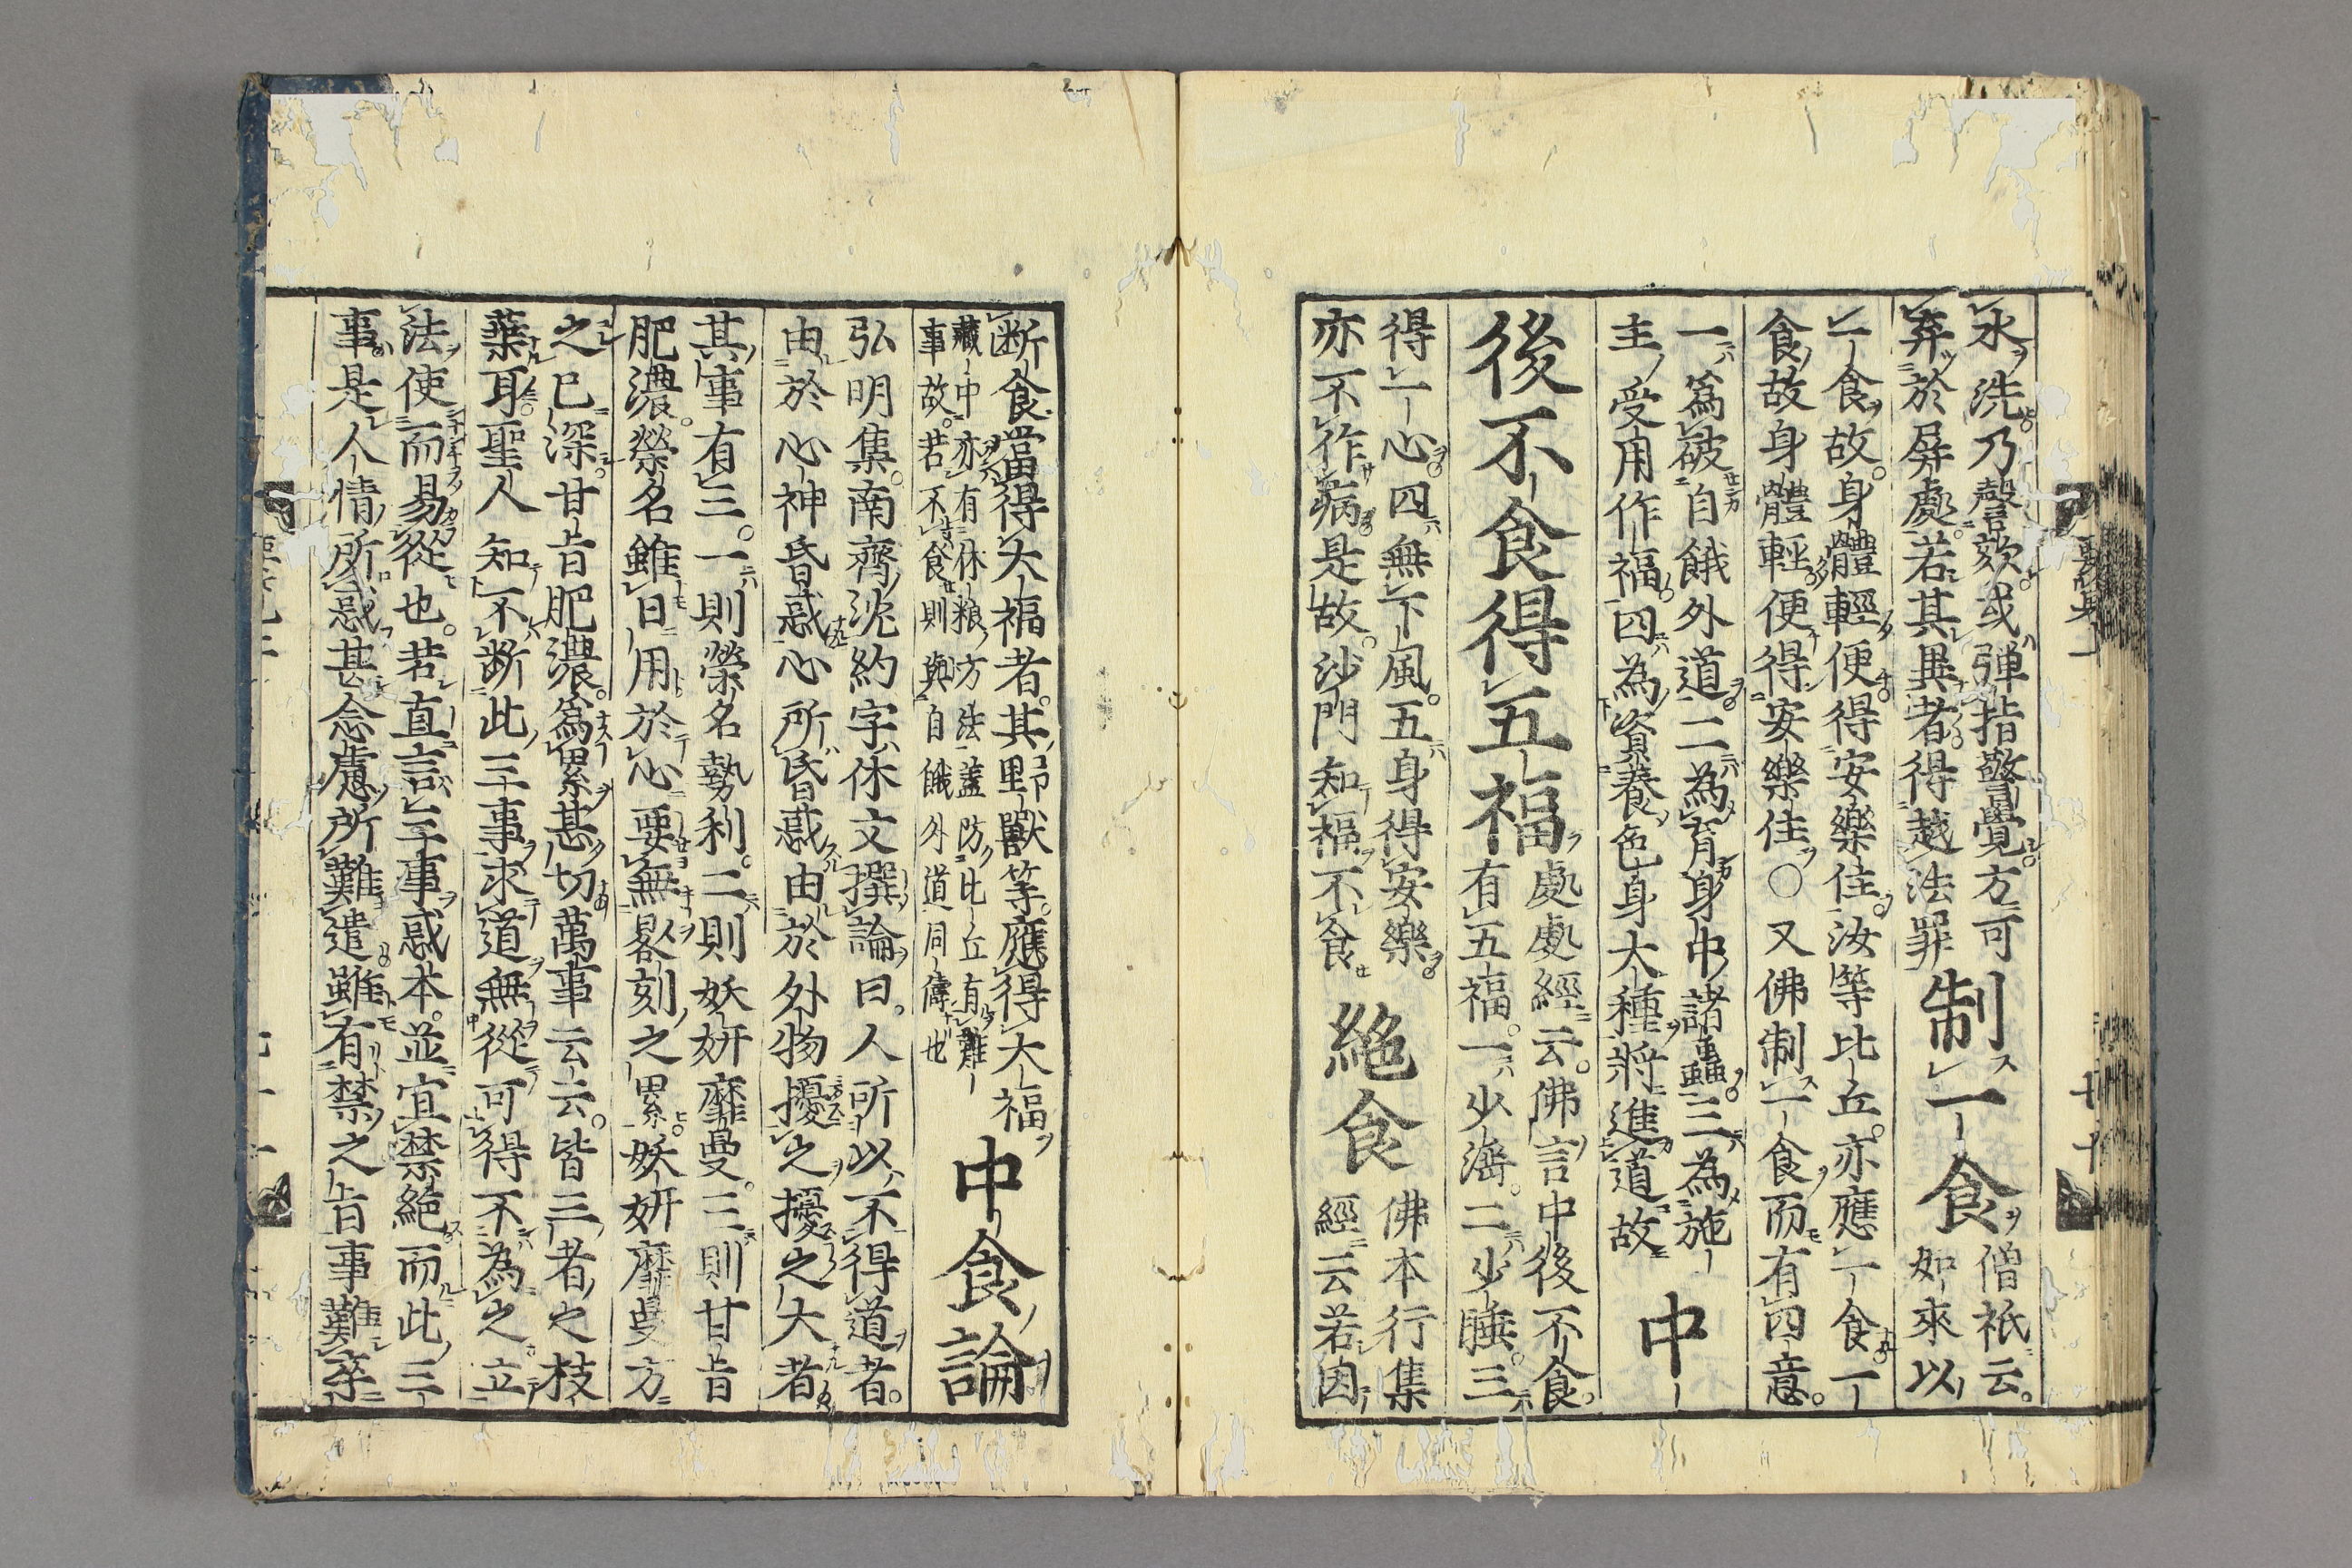 水洗乃謦欬或彈指警覺方可
弃於屏處若其異者得越法罪
制一食
僧祇云
如來以
一食故身體輕便得安樂住汝等比丘亦應一食一
食故身體輕便得安樂住○又佛制一食而有四意
一為破自餓外道二為育身中諸蟲三為施
主受用作福四為資養色身大種將進道故
中
後不食得五福
處處經云佛言中後不食
有五福一少婬二少睡三
得一心四無下風五身得安樂
亦不作病是故沙門知福不食
絕食
佛本行集
經云若因
断食當得大福者其野獸等應得大福
藏中亦有休粮方法蓋防比丘有難
事故若不食則與自餓外道同儔也
中食論
弘明集南齊沈約字休文撰論曰人所以不得道者
由於心神昏惑心所昏惑由於外物擾之擾之大者
其事有三一則榮名勢利二則妖妍靡曼三則甘旨
肥濃榮名雖日用於心要無晷刻之累妖妍靡曼方
之已深甘旨肥濃為累甚切萬事云云皆三者之枝
葉耳聖人知不断此三事求道無從可得不為之立
法使而易從也若直言三事惑本並宜禁絕而此三
事是人情所惑甚念慮所難遣雖有禁之旨事難卒